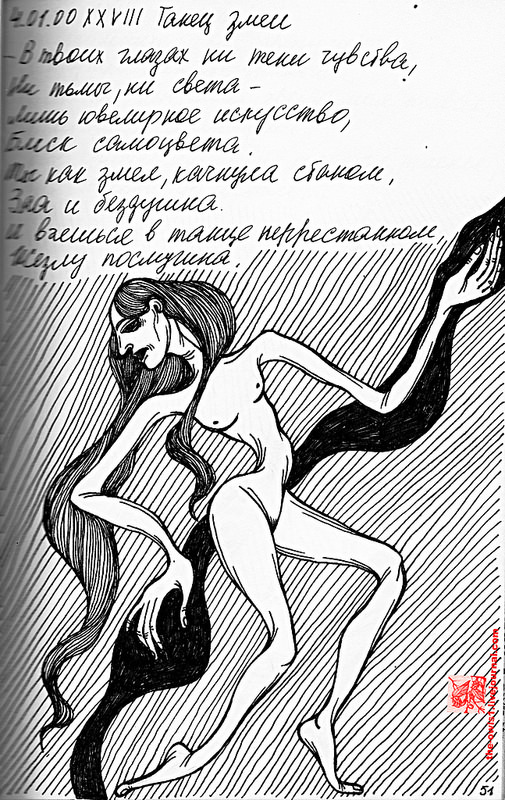 4.01.00 XXVIII Танец змеи
– В твоих глазах ни тени чувства,
Ни тьмы, ни света –
Лишь ювелирное искусство,
Блеск самоцвета.
Ты как змея, качнула станом,
Зла и бездушна.
И вьешься в танце неррестанном,
Жезлу послушна.
51